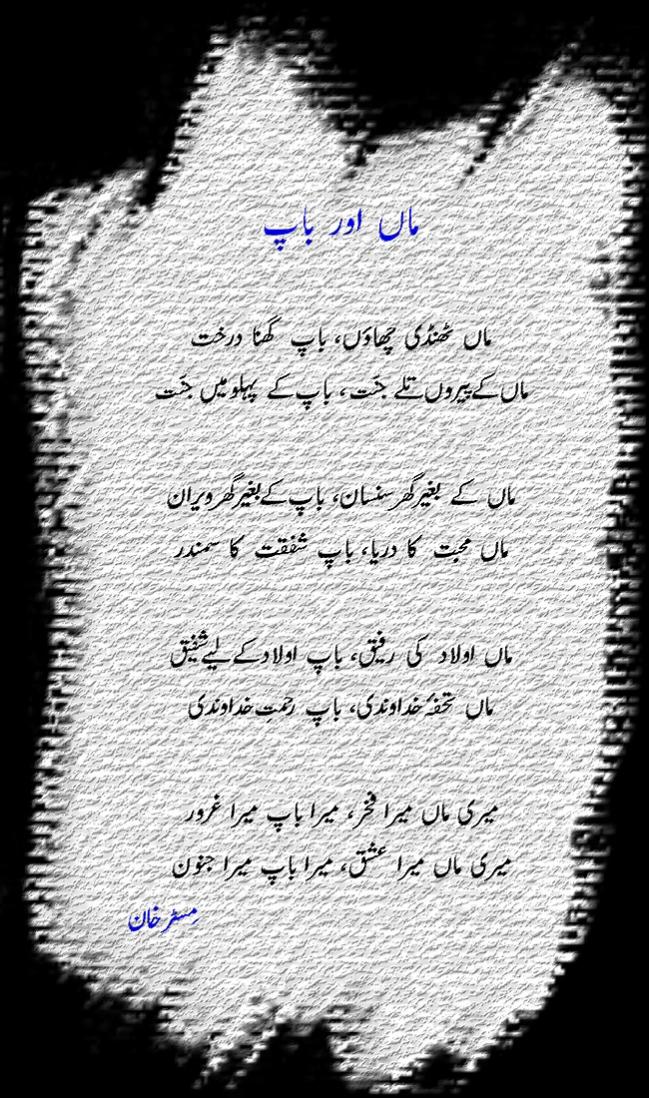 ماں اور باپ
ماں ٹھنڈی چھاؤں، باپ گھنا درخت
ماں کے پیروں تلے جنّت، باپ کے پہلو میں جنّت
ماں کے بغیر گھر سنسان، باپ کے بغیر گھر ویران
ماں محبت کا دریا، باپ شفقت کا سمندر
ماں اولاد کی رفیق، باپ اولاد کے لیے شفیق
ماں تحفۂ خداوندی، باپ رحمتِ خداوندی
میری ماں میرا فخر، میرا باپ میرا غرور
میری ماں میرا عشق، میرا باپ میرا جنون
مِسٹر خان